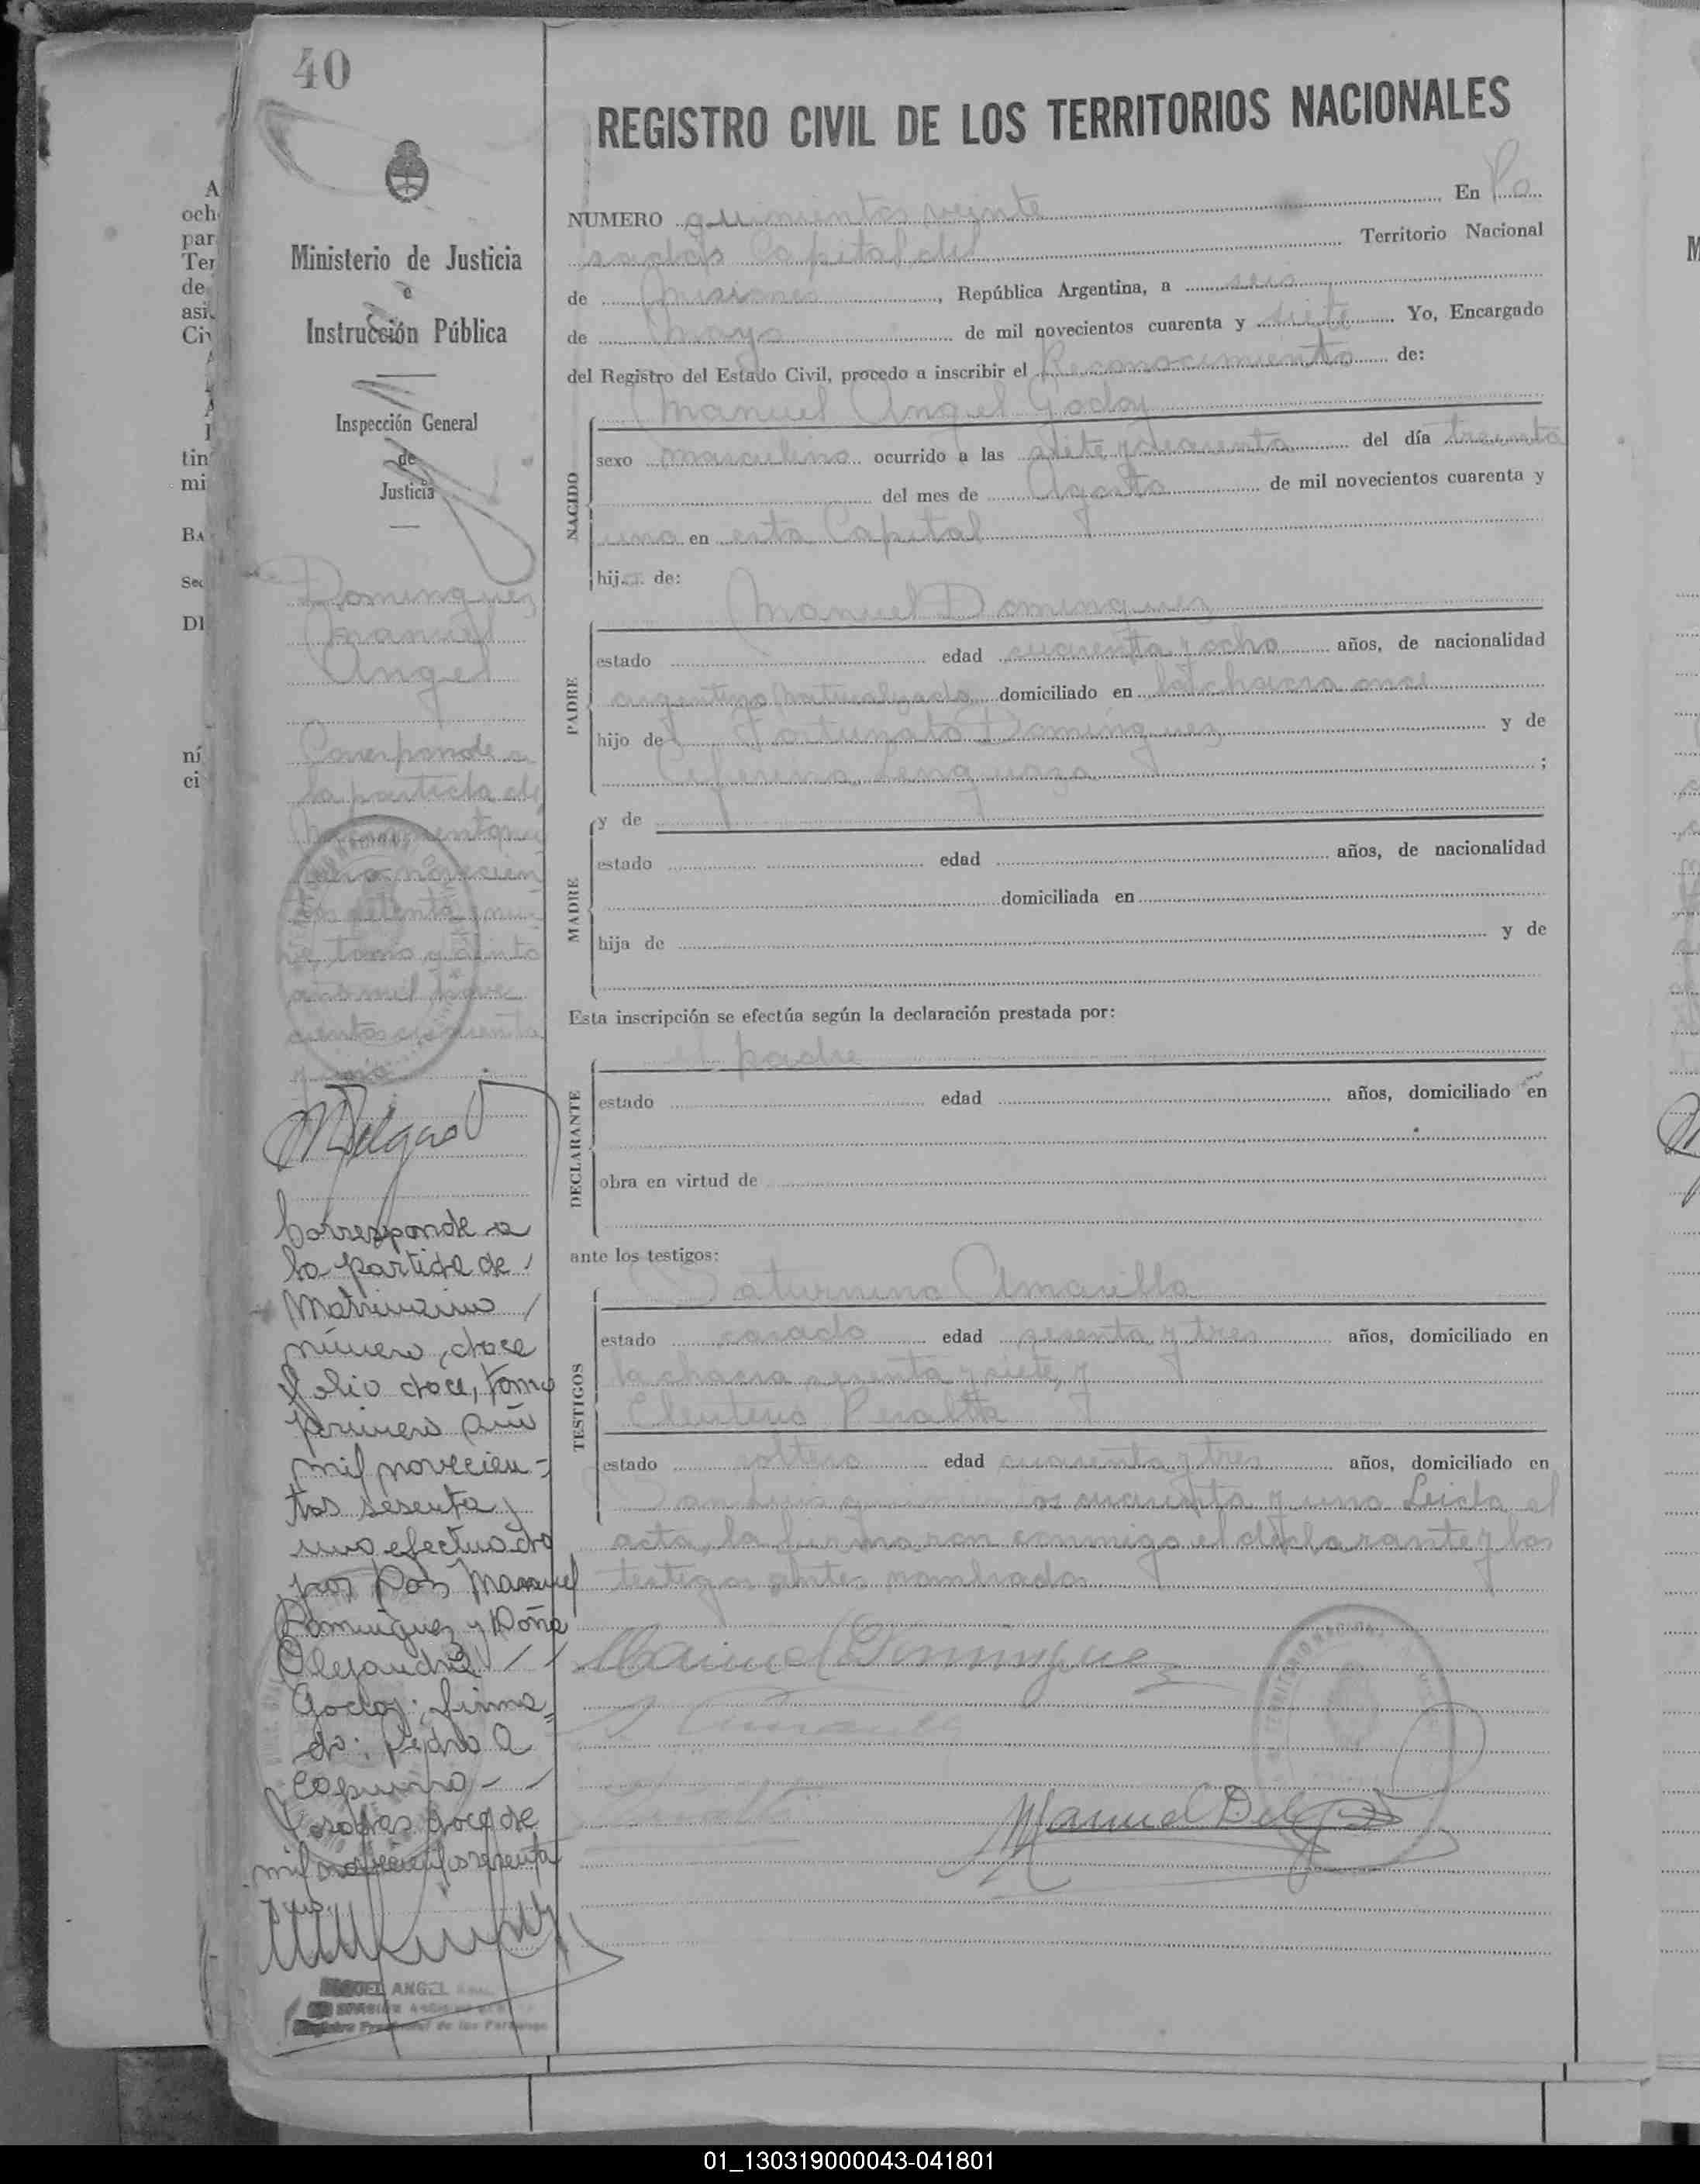 40
REGISTRO CIVIL DE LOS TERRITORIOS NACIONALES
Ministerio de Justicia
e
Instrucción Pública
Inspección General
de
Justicia
Dominguez
Manuel
Angel
Corresponde a
la partida de
tos setenta y nue
ve, tomo quinto
año mil nove
cientos cuarenta
y uno
Corresponde a
la partida de
Matrimonio
número, doce
folio doce, tomo
primero año
mil novecien-
tos sesenta y
uno efectuado
por Don Manuel
Dominguez y Doña
Alejandra
Godoy; firma
do: Pedro A
Posadas doce de
mil novecientos sesenta
y uno.
ANGEL
NUMERO quinientos veinte En Po
sadas Capital del Territorio Nacional
de Misiones, República Argentina, a seis
de Mayo de mil novecientos cuarenta y siete Yo, Encargado
del Registro del Estado Civil, procedo a inscribir el Reconocimiento de:
Manuel Angel Godoy
NACIDO
sexo masculino ocurrido a las siete y cuarenta del día treinta
del mes de Agosto de mil novecientos cuarenta y
uno en esta Capital
hij de:
Manuel Dominguez
PADRE
estado edad cuarenta y ocho años, de nacionalidad
argentino naturalizado domiciliado en la chacra once
hijo de Fortunato Dominguez y de
Ceferina ;
MADRE
y de
estado edad años, de nacionalidad
domiciliada en
hija de y de
Esta inscripción se efectúa según la declaración prestada por:
el padre
DECLARANTE
estado edad años, domiciliado en
obra en virtud de
ante los testigos:
Saturnino Amarilla
TESTIGOS
estado casado edad sesenta y tres años, domiciliado en
la chacra sesenta y siete, y
Eleuterio Peralta
estado soltero edad cuarenta y tres años, domiciliado en
San Luis quinientos cuarenta y uno Leida el
acta, la firmaron conmigo el declarante y los
testigos antes nombrados
Manuel Dominguez
Peralta
Manuel Delg
01_130319000043-041801